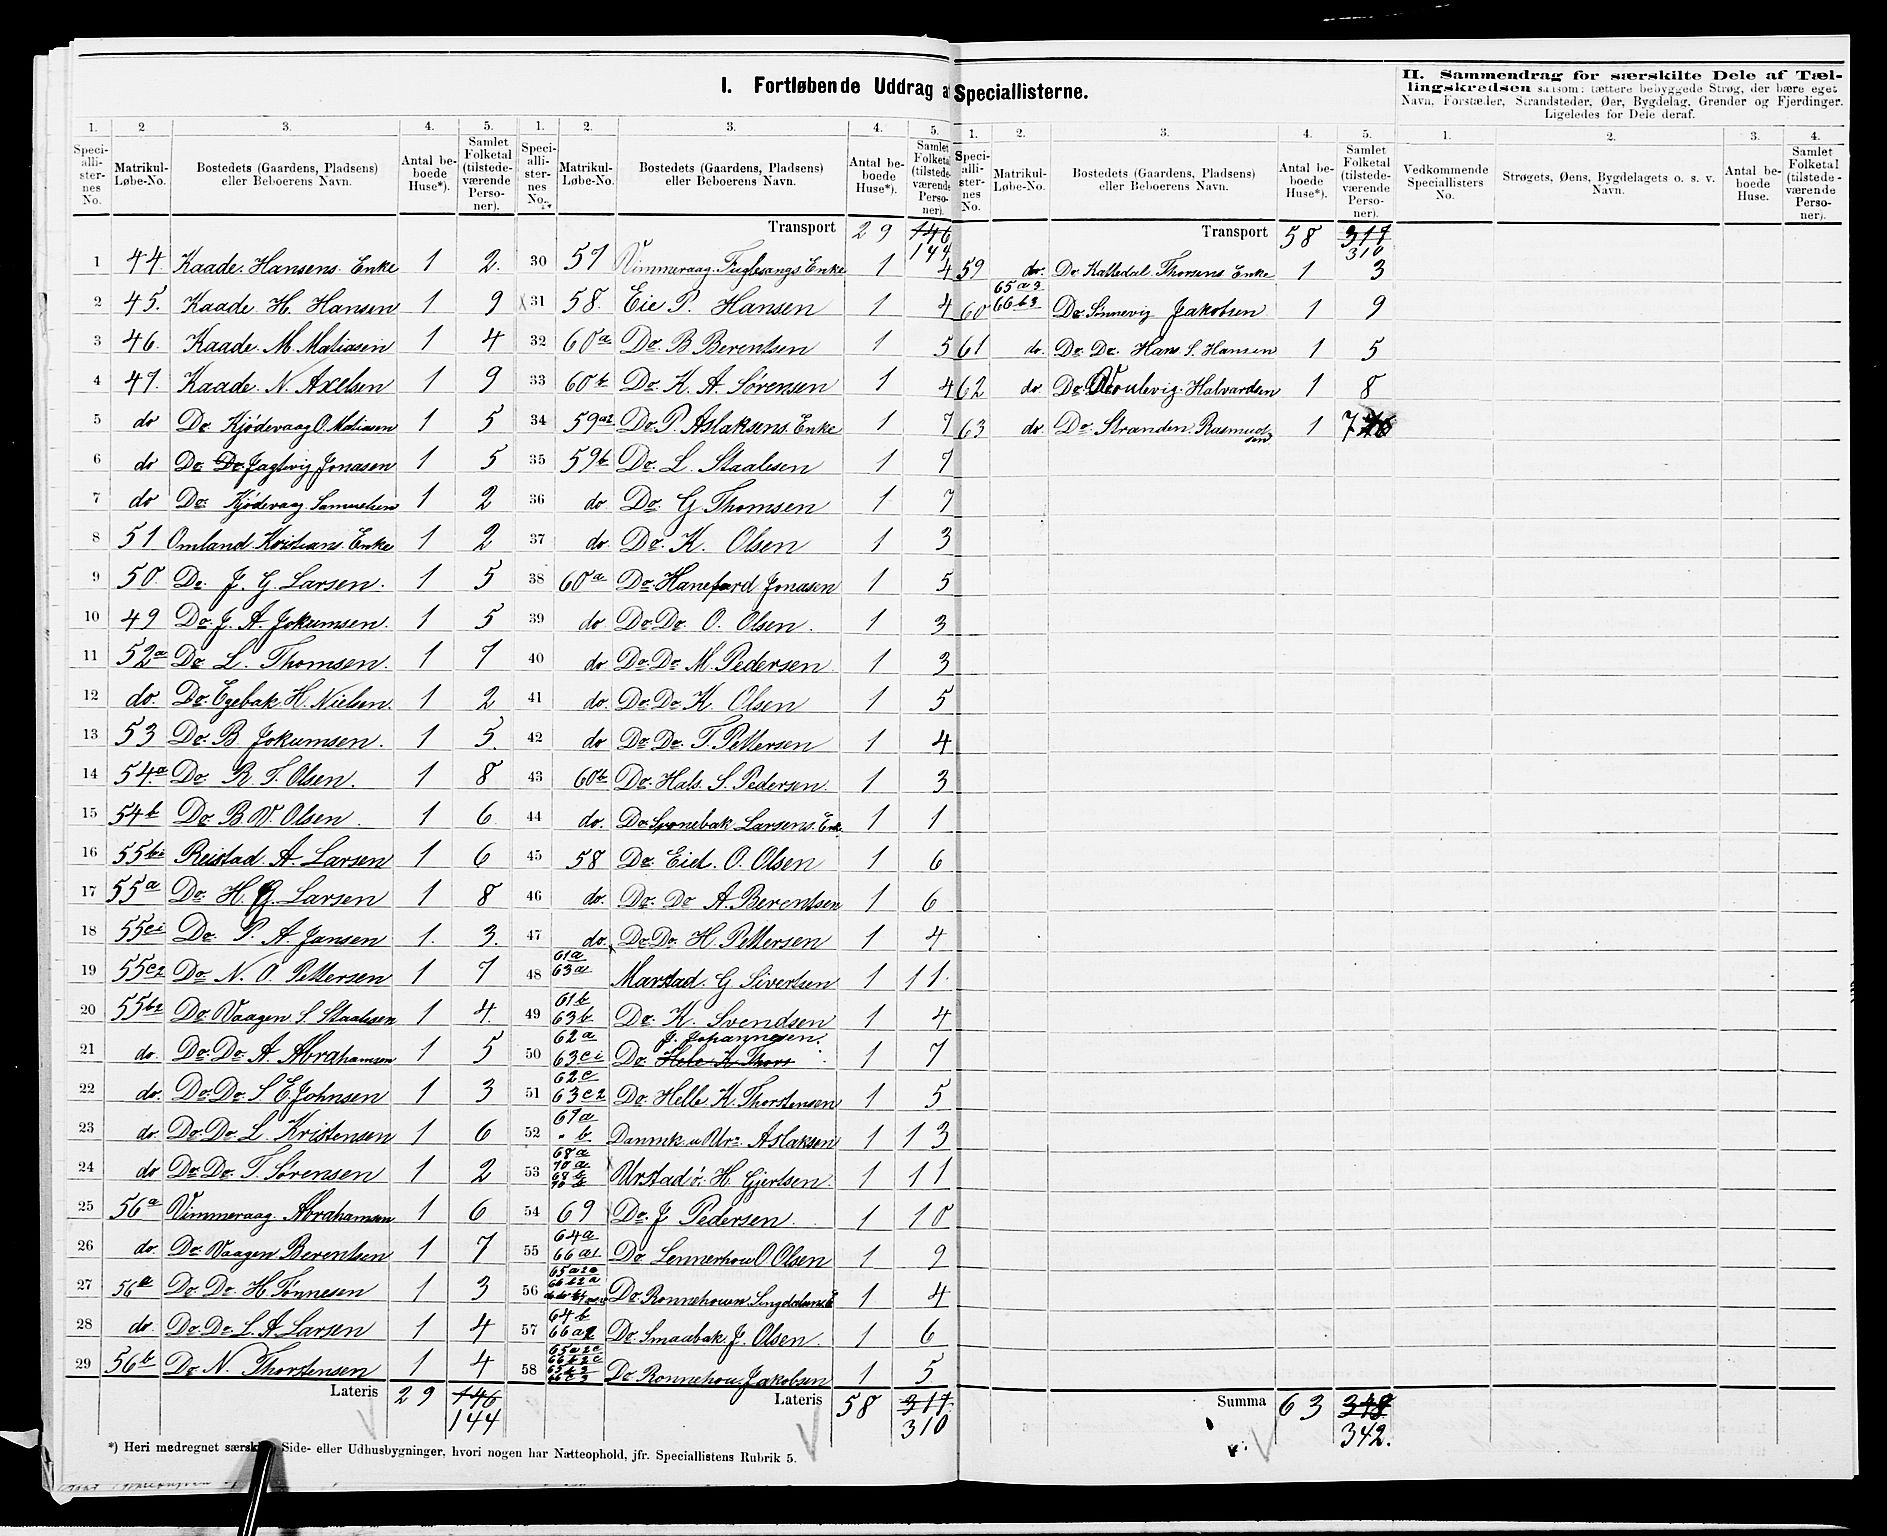 I. Fortløbende Uddrag af Speciallisterne.
II. Sammendrag for særskilte Dele af Tæl-
lingskredsen saasom: tættere bebyggede Strøg, der bære eget
Navn, Forstæder, Strandsteder, Øer, Bygdelag, Grender og Fjerdinger.
Ligeledes for Dele deraf.
1. 2 3. 4. 5.
Speci-alli-ster-nes No. Matrikul-Løbe-No. Bostedets (Gaardens, Pladsens) eller Beboerens Navn. Antal be-boede Huse*). Samlet Folketal (tilstede-værende Perso-ner).
1 44. Kaade. Hansens Enke 1 2.
2 45. Kaade H. Hansen 1 9
3 46. Kaade M. Matiasen 1 4
4 47. Kaade. N. Axelsen 1 9
5 do Do Kjödevaag O. Matiasen 1 5
6 do Do Do Jagtvig Jonasen 1 5
7 do Do: Kjödevaag Samuelsen 1 2
8 51 Omland Kristians Enke 1 2
9 50. Do. J. G. Larsen. 1 5
10 49 Do. J. A. Jokumsen. 1 5
11 52a Do L. Thomsen. 1 7
12 do. Do. Egebak H. Nielsen. 1 2
13 53 Do. B Jokumsen. 1 5.
14 54.a Do R. T. Olsen. 1 8
15 54b Do B. V. Olsen. 1 6
16 55b1 Reistad A. Larsen 1 6
17 55a Do. H. G. Larsen 1 8
18 55c1 Do. P. A. Jansen 1. 3.
19 55c2 Do N. O. Pettersen 1 7
20 55b2 Do Vaagen S Staalesen 1 4.
21 do. Do. Do. A. Abrahamsen 1 5
22 do. Do. Do. S E Johnsen 1 3
23 do. Do. Do L Kristensen 1 6
24 do Do Do. T. Sørensen 1 2
25 56a Vimmeraag Abrahamsen 1 6
26 do. Do. Vaagen Berentsen 1 7
27 56a Do. Do. H. Tonnesen 1 3
28 do. Do. Do. L. A. Larsen 1 4
29 56b Do. N. Thorstensen 1 4
Lateris 29 146
144
1. 2. 3. 4. 5.
Speci-alli-ster-nes No. Matrikul-Løbe-No. Bostedets (Gaardens, Pladsens) eller Beboerens Navn. Antal be-boede Huse*). Samlet Folketal (tilstede-værende Perso-ner).
Transport 29 146
144
30 57 Vimmeraag. Fuglesangs Enke 1 4
31 58. Eie P. Hansen 1 4
32 60a Do. B Berentsen 1 5
33 60b Do. K. A. Sørensen 1 4
34 59a2 Do. P. Aslaksens Enke 1 7
35 59b Do. L. Staalesen 1 7
36 do Do. G Thomsen 1 7
37 do. Do. K. Olsen 1 3
38 60a Do. Hanefard Jonasen 1 5
39 do Do Do O. Olsen. 1 3
40 do Do. Do M. Pedersen 1 3
41 do. Do. Do K Olsen 1 5
42 do Do. Do. T. Pettersen 1 4
43 60b Do. Hals. S. Pedersen. 1 3
44 do. Do. Larsens. Enk. 1 1
45 58 Do. Eiet. O. Olsen 1 6
46 do. Do. Do A. Berentsen 1 6
47 do. Do. Do. H. Pettersen 1 4
48 61a
63a Marstad. G Sivertsen 1 11.
49 61b
63b Do. K. Svendsen 1 4
J. Johannesen.
50 62a
63c1 Do. Hele K Thors 1 7
51 62c
63c2 Do. Helle K. Thorstensen 1 5
52 67a
" b Aslaksen 1 13
53 68a
70a
68b
70b Urstad ö. H Gjertsen. 1 11
54 69 Do. J Pedersen. 1 10
55 64a
66a1 Do. Lennerhou O Olsen 1 9
56 65a2a
66b2a Do. Ronnehouen 1 4
57 64b
66a2 Do. Smaabak J. Olsen. 1 6
58 65a2c
66b2c
65b3
66c3 Do Ronnehou. Jakobsen 1 5
Lateris 58 317.
310
1. 2. 3. 4. 5.
Speci-alli-ster-nes No. Matrikul-Løbe-No. Bostedets (Gaardens, Pladsens) eller Beboerens Navn. Antal be-boede Huse*). Samlet Folketal (tilstede-værende Perso-ner).
Transport 58 317
310
59 do. Do. Kalledal. Thorsens Enke 1 3
60 65a3
66b3 Do. Sinnevig Jakobsen 1 9
61 do. Do. Do. Hans S. Hansen 1 5
62 do Do Halvardsen 1 8
63 do. Do. Stranden. Rasmudsen 1 7
Summa 63 348
342.
1. 2. 3. 4.
Vedkommende Speciallisters No. Strøgets, Øens, Bygdelagets o. s. v. Navn. Antal be-boede Huse. Samlet Folketal (tilstede-værende Perso-ner).
*) Heri medregnet særsk Side- eller Udhusbygninger, hvori nogen har Natteophold, jfr. Speciallistens Rubrik 5.